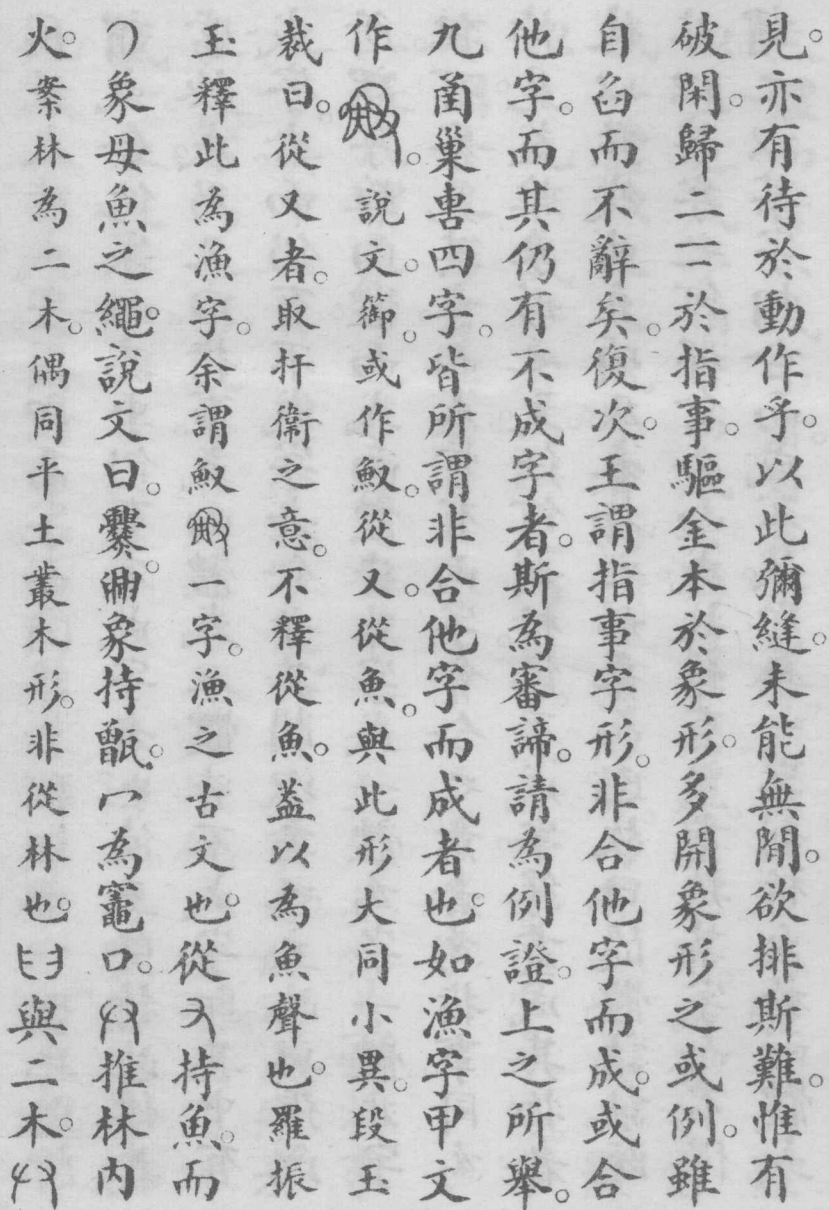 見。亦有待於動作乎。以此彌縫。未能無閒。欲排斯難。惟有
破閑。歸二一於指事。驅金本於象形。多開象形之或例。雖
自臽而不辭矣。復次。王謂指事字形。非合他字而成。或合
他字。而其仍有不成字者。斯為審諦。請為例證。上之所舉。
九𠧪巢叀四字。皆所謂非合他字而成者也。如漁字甲文
作。說文。御。或作䰻。從又。從魚。與此形大同小異。段玉
裁曰。從又者。取扞衞之意。不釋從魚。葢以為魚聲也。羅振
玉釋此為漁字。余謂䰻一字。漁之古文也。從又持魚。而
象毋魚之繩。說文曰。爨。象持甑。冖為竈口。推林內
火。案林為二木。偶同平土叢木形。非從林也。𦥑與二木。